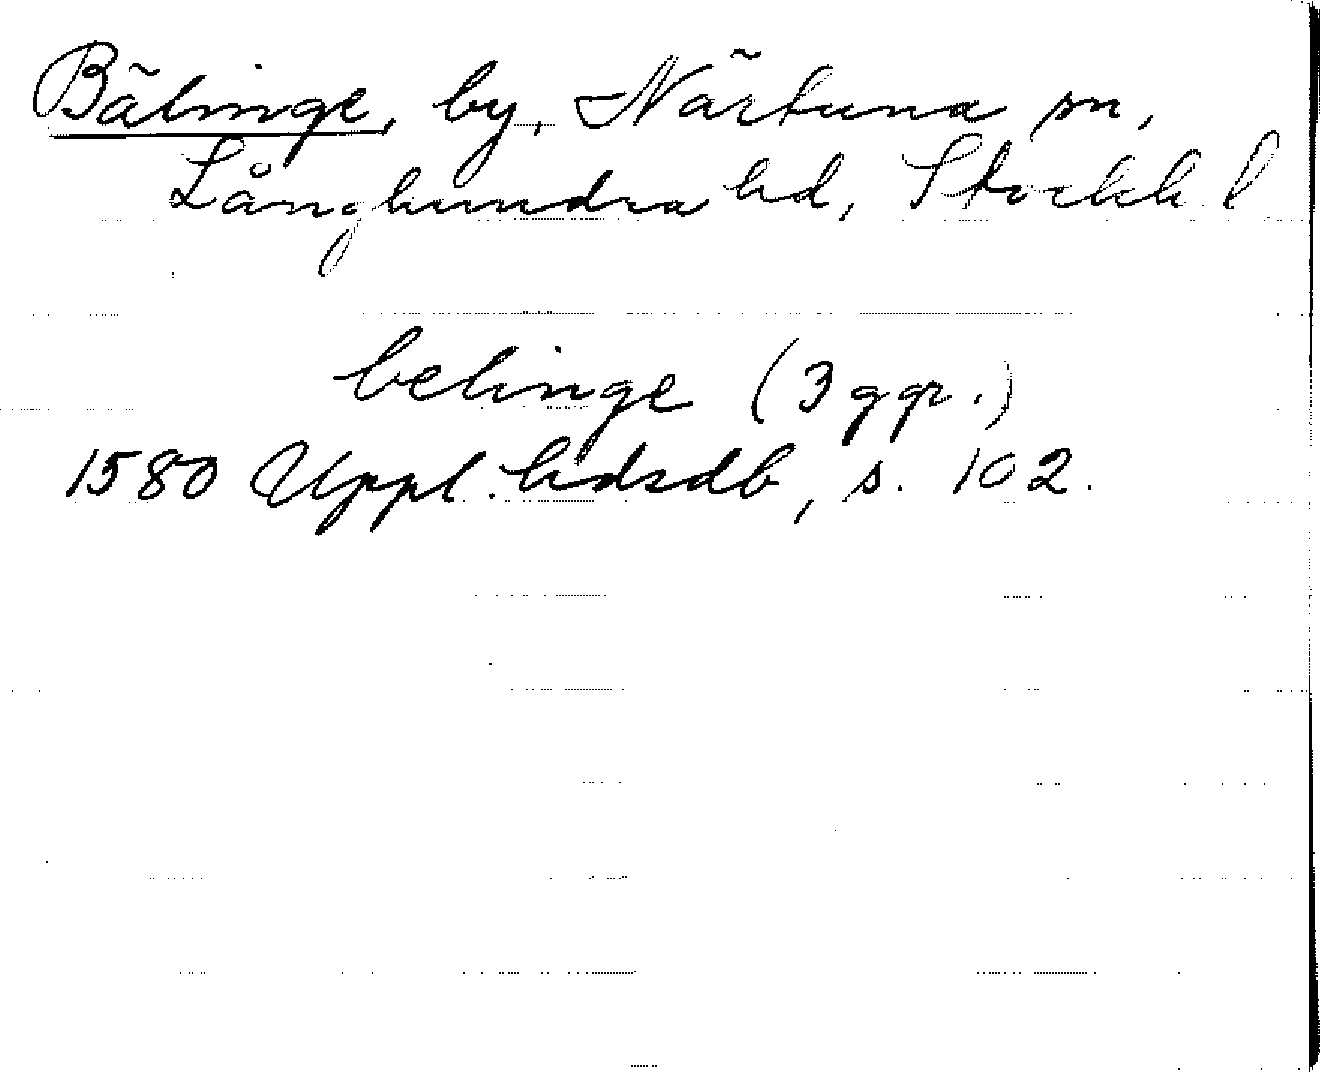 Bälinge, by, Närtuna sn,
Långhundra hd, Stockh l
belinge (3 ggr.)
1580 Uppl. hdsdb, s. 102.